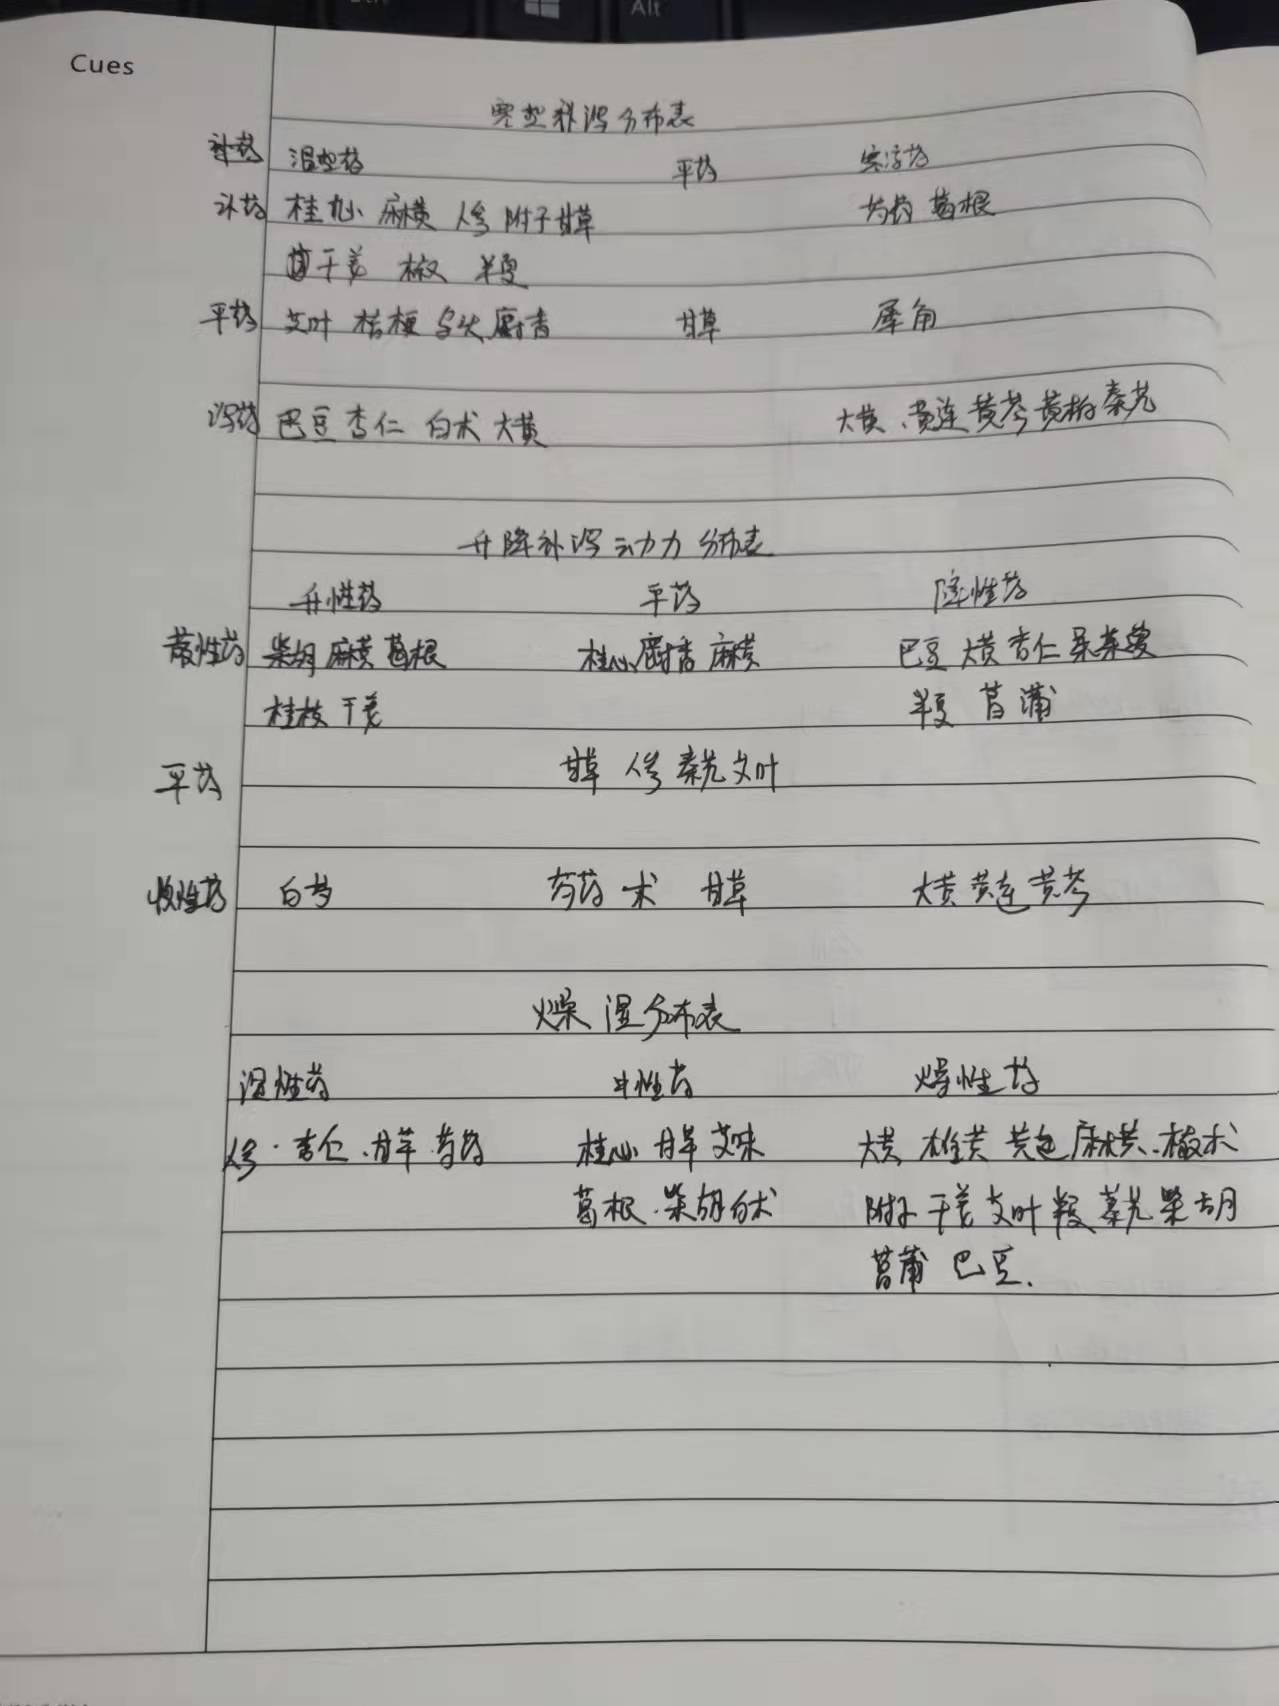 Alt
Cues
寒热补泻分布表
补药 温热药 平药 寒凉药
补药 桂心 麻黄 人参 附子 甘草 芍药 葛根
干姜 椒 半夏
平药 艾叶 桔梗 乌头 麝香 甘草 犀角
泻药 巴豆 杏仁 白术 大黄 大黄、黄连 黄芩 黄柏 秦艽
升降补泻动力分布表
升性药 平药 降性药
散性药 柴胡 麻黄 葛根 桂心 麝香 麻黄 巴豆 大黄 杏仁
桂枝 干姜 半夏 菖蒲
平药 甘草 人参 秦艽 艾叶
收性药 白芍 芍药 术 甘草 大黄 黄连 黄芩
燥湿分布表
湿性药 中性药 燥性药
人参·杏仁·甘草·芍药 桂心 甘草 大黄 雄黄 黄连 麻黄·椒 术
葛根·柴胡 白术 附子 干姜 艾叶 半夏 秦艽 柴胡
菖蒲 巴豆.